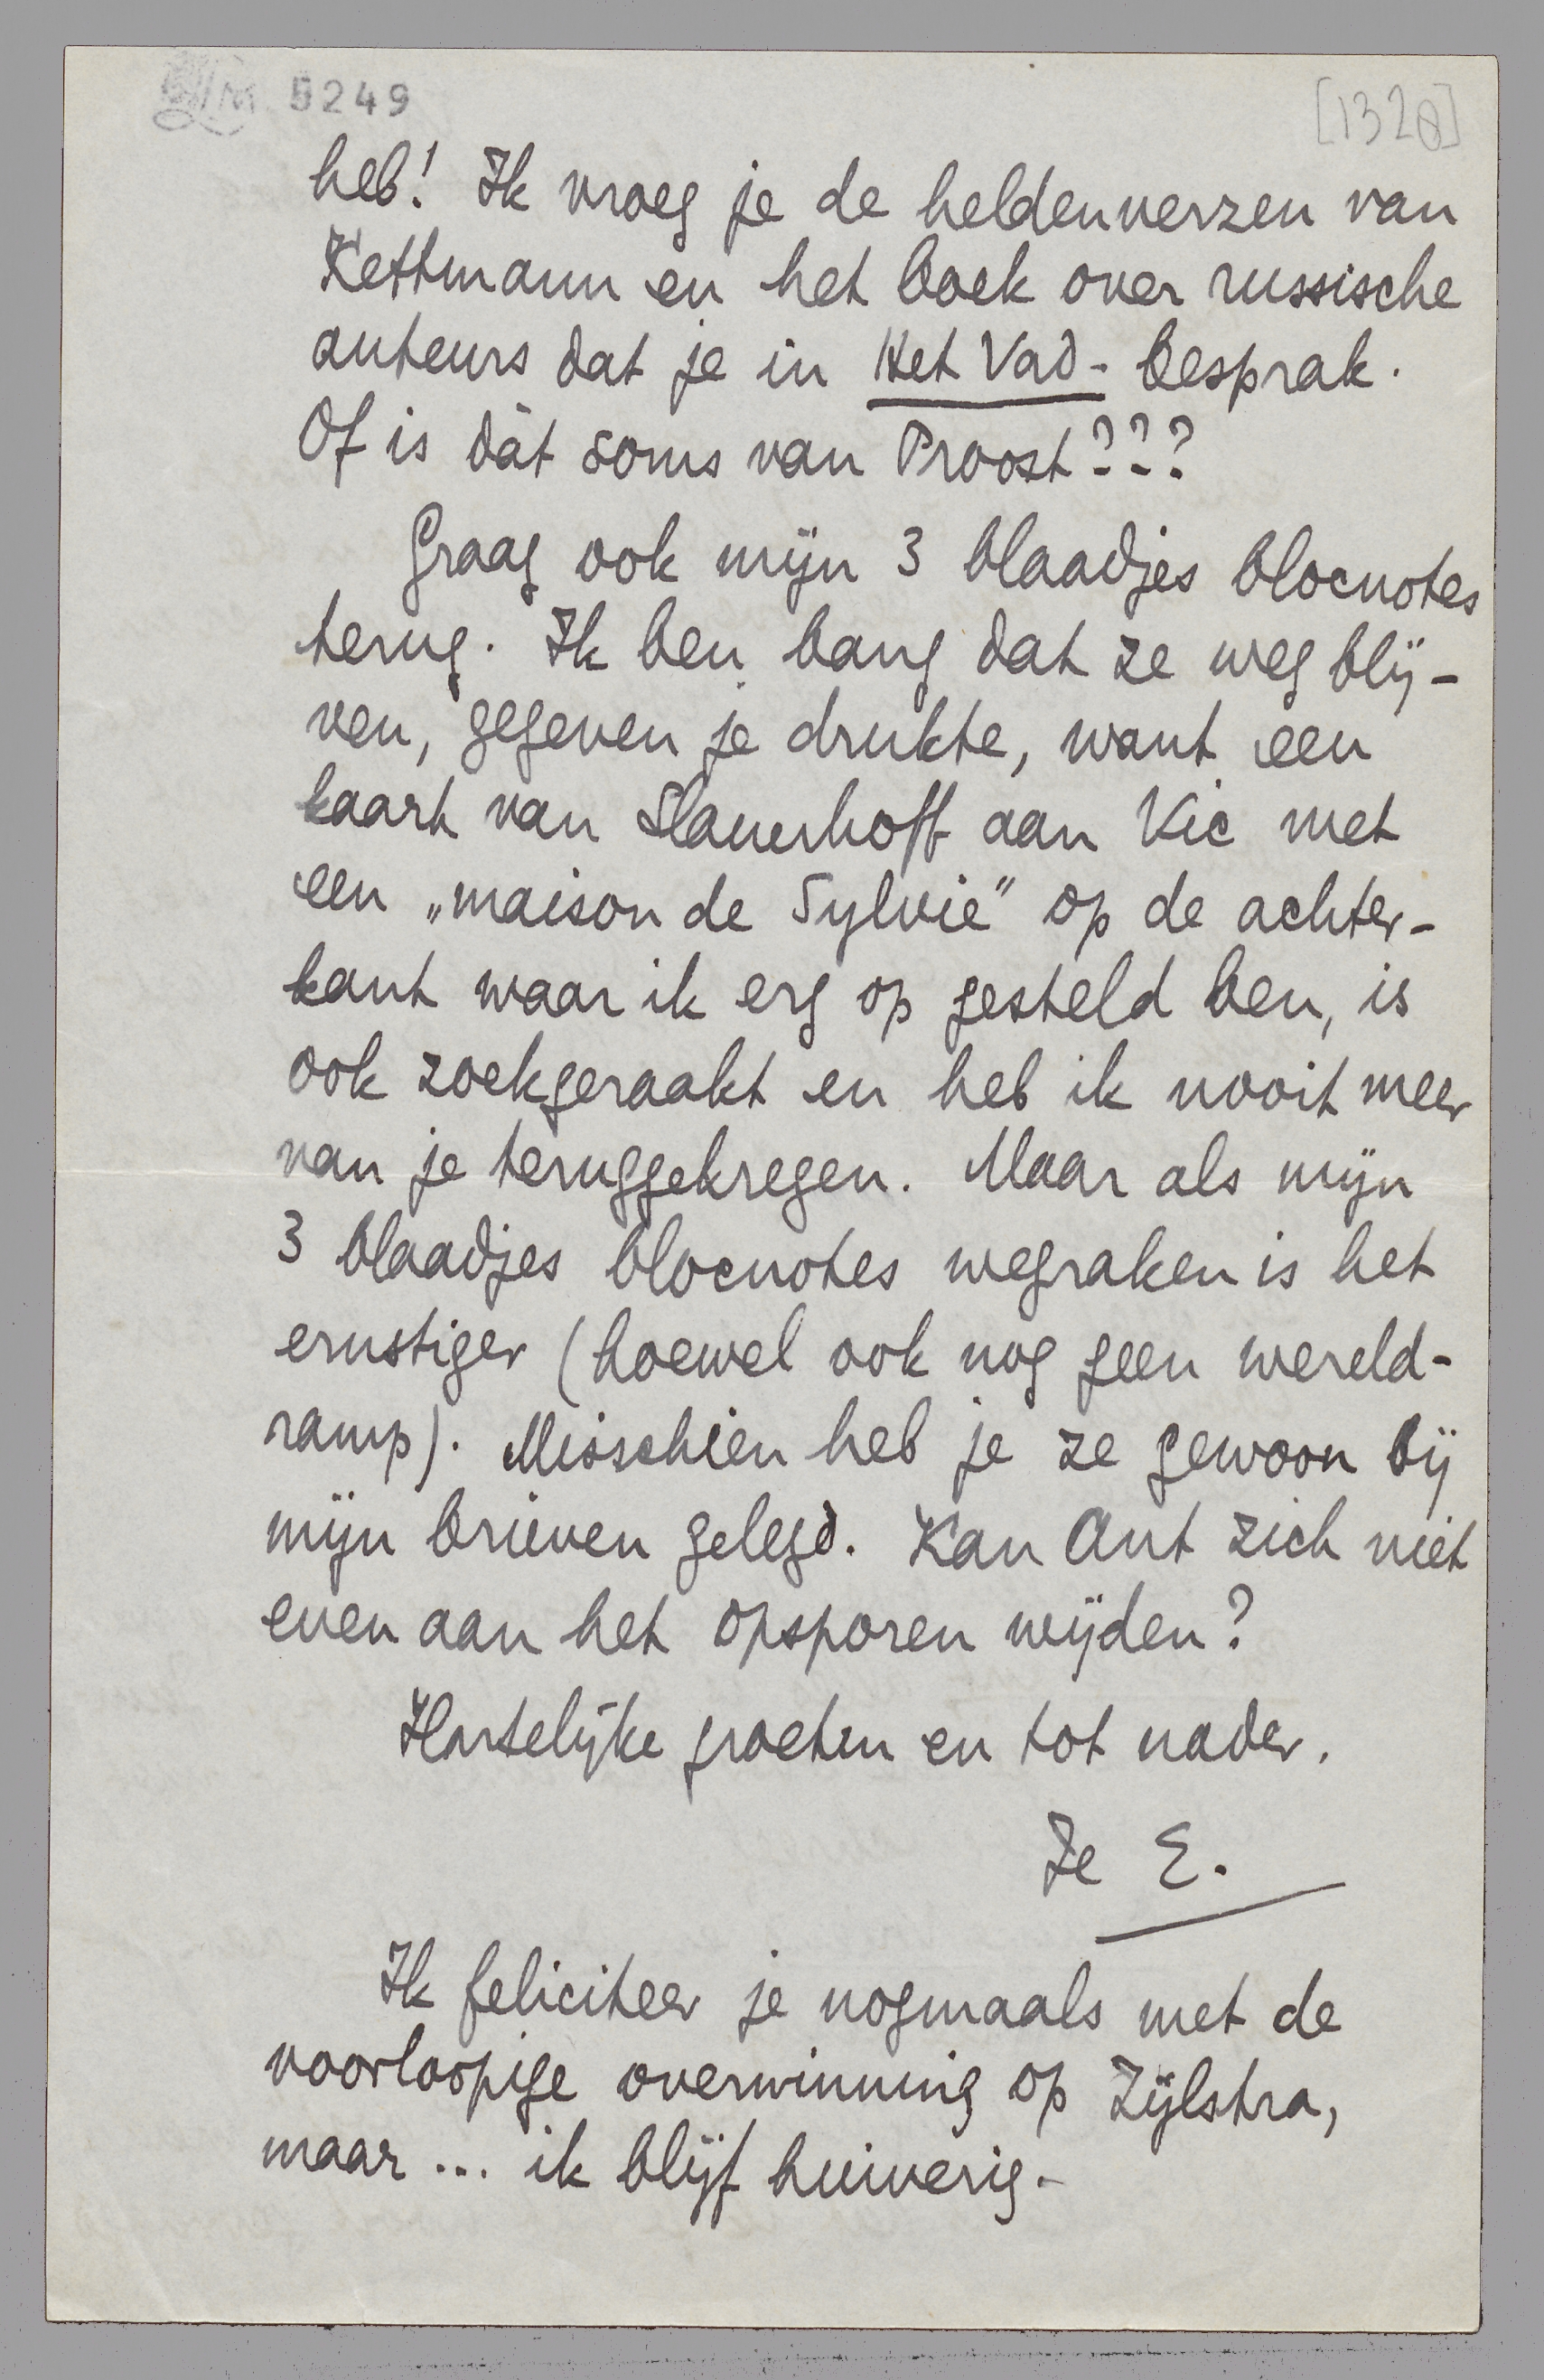 5249
[132
heb! Ik vroeg je de heldenverzen van
Kettmann en het boek over russische
auteurs dat je in Het Vad. besprak.
Of is dàt soms van Proost???
Graag ook mijn 3 blaadjes blocnotes
terug. Ik ben bang dat ze weg blij-
ven, gegeven je drukte, want een
kaart van Slauerhoff aan Vic met
een „maison de Sylvie" op de achter-
kant waar ik erg op gesteld ben, is
ook zoekgeraakt en heb ik nooit meer
van je teruggekregen. Maar als mijn
3 blaadjes blocnotes wegraken is het
ernstiger (hoewel ook nog geen wereld-
ramp). Misschien heb je ze gewoon bij
mijn brieven gelegd. Kan Ant zich niet
even aan het opsporen wijden?
Hartelijke groeten en tot nader.
Je E.
Ik feliciteer je nogmaals met de
voorloopige overwinning op Zijlstra,
maar ... ik blijf huiverig.